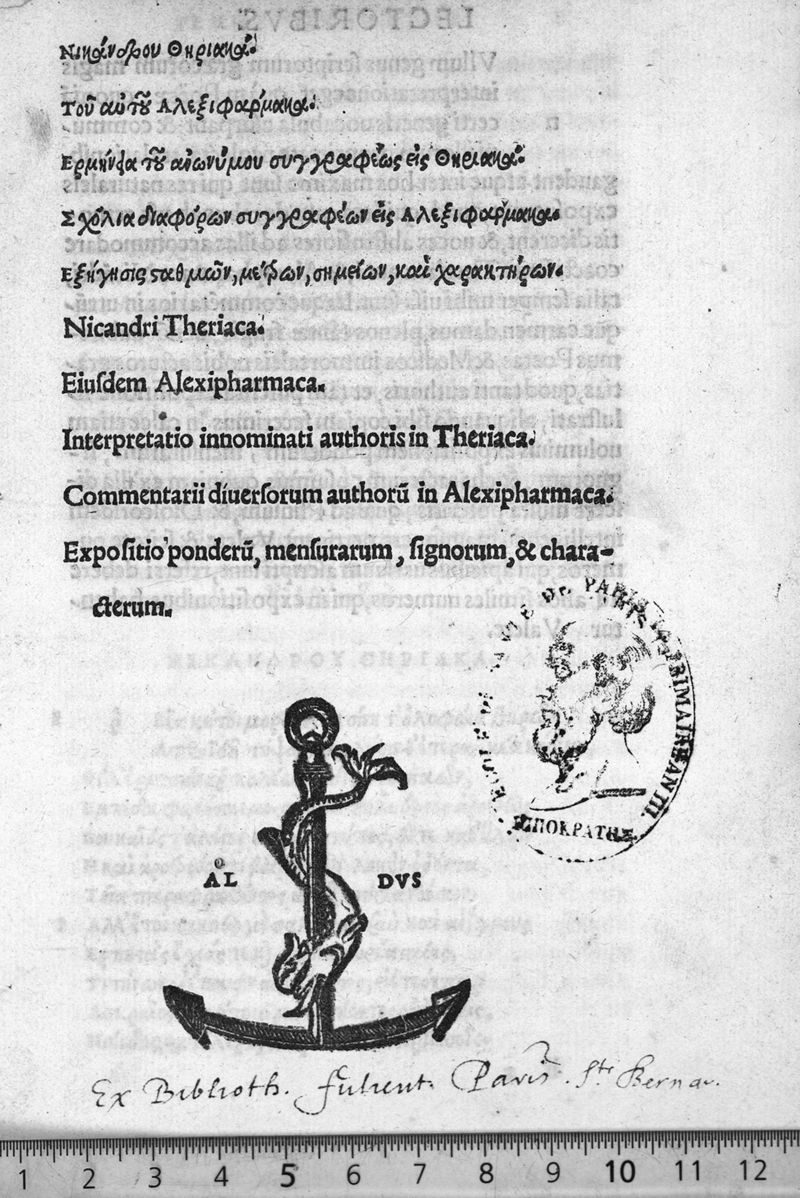 Νικάνδρου Θηριακά.
Τοῦ αὐτοῦ Ἀλεξιφάρμακα.
Ερμηνεία τοῦ ἀνωνύμου συγγραφέως εἰς Θηριακά.
Σχόλια διαφόρων συγγραφέων εἰς Ἀλεξιφάρμακα.
Εξήγησις σταθμῶν, μέτρων, σημείων, καὶ χαρακτήρων.
Nicandri Theriaca.
Eiuſdem Alexipharmaca.
Interpretatio innominati authoris in Theriaca.
Commentarii diuerſorum authorū in Alexipharmaca.
Expoſitio ponderū, menſurarum, ſignorum, & chara-
cterum.
DE PARIS
ΙΠΠΟΚΡΑΤΗΣ
AL DVS
Ex Biblioth. fulient. Paris. Sti Bernar.
1 2 3 4 5 6 7 8 9 10 11 12